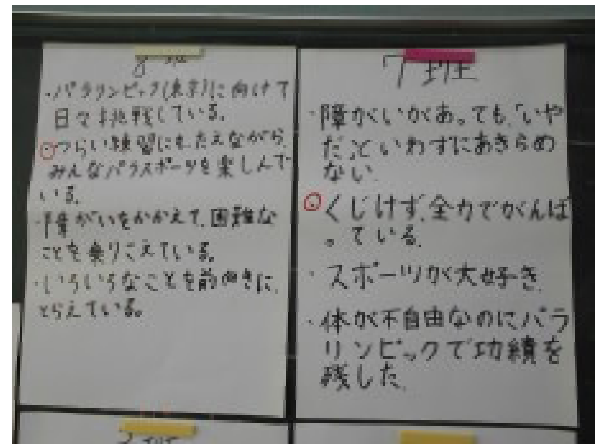 8班
・パラリンピック(東京)に向けて
日々挑戦している。
・つらい練習にもたえながら、
みんなパラスポーツを楽しんで
いる。
・障がいをかかえて、困難な
ことを乗りこえている。
・いろいろなことを前向きに、
とらえている。
7班
・障がいがあっても、「いや
だ」といわずにあきらめ
ない
・くじけず、全力でがんば
っている。
・スポーツが大好き
・体が不自由なのにパラ
リンピックで功績を
残した。